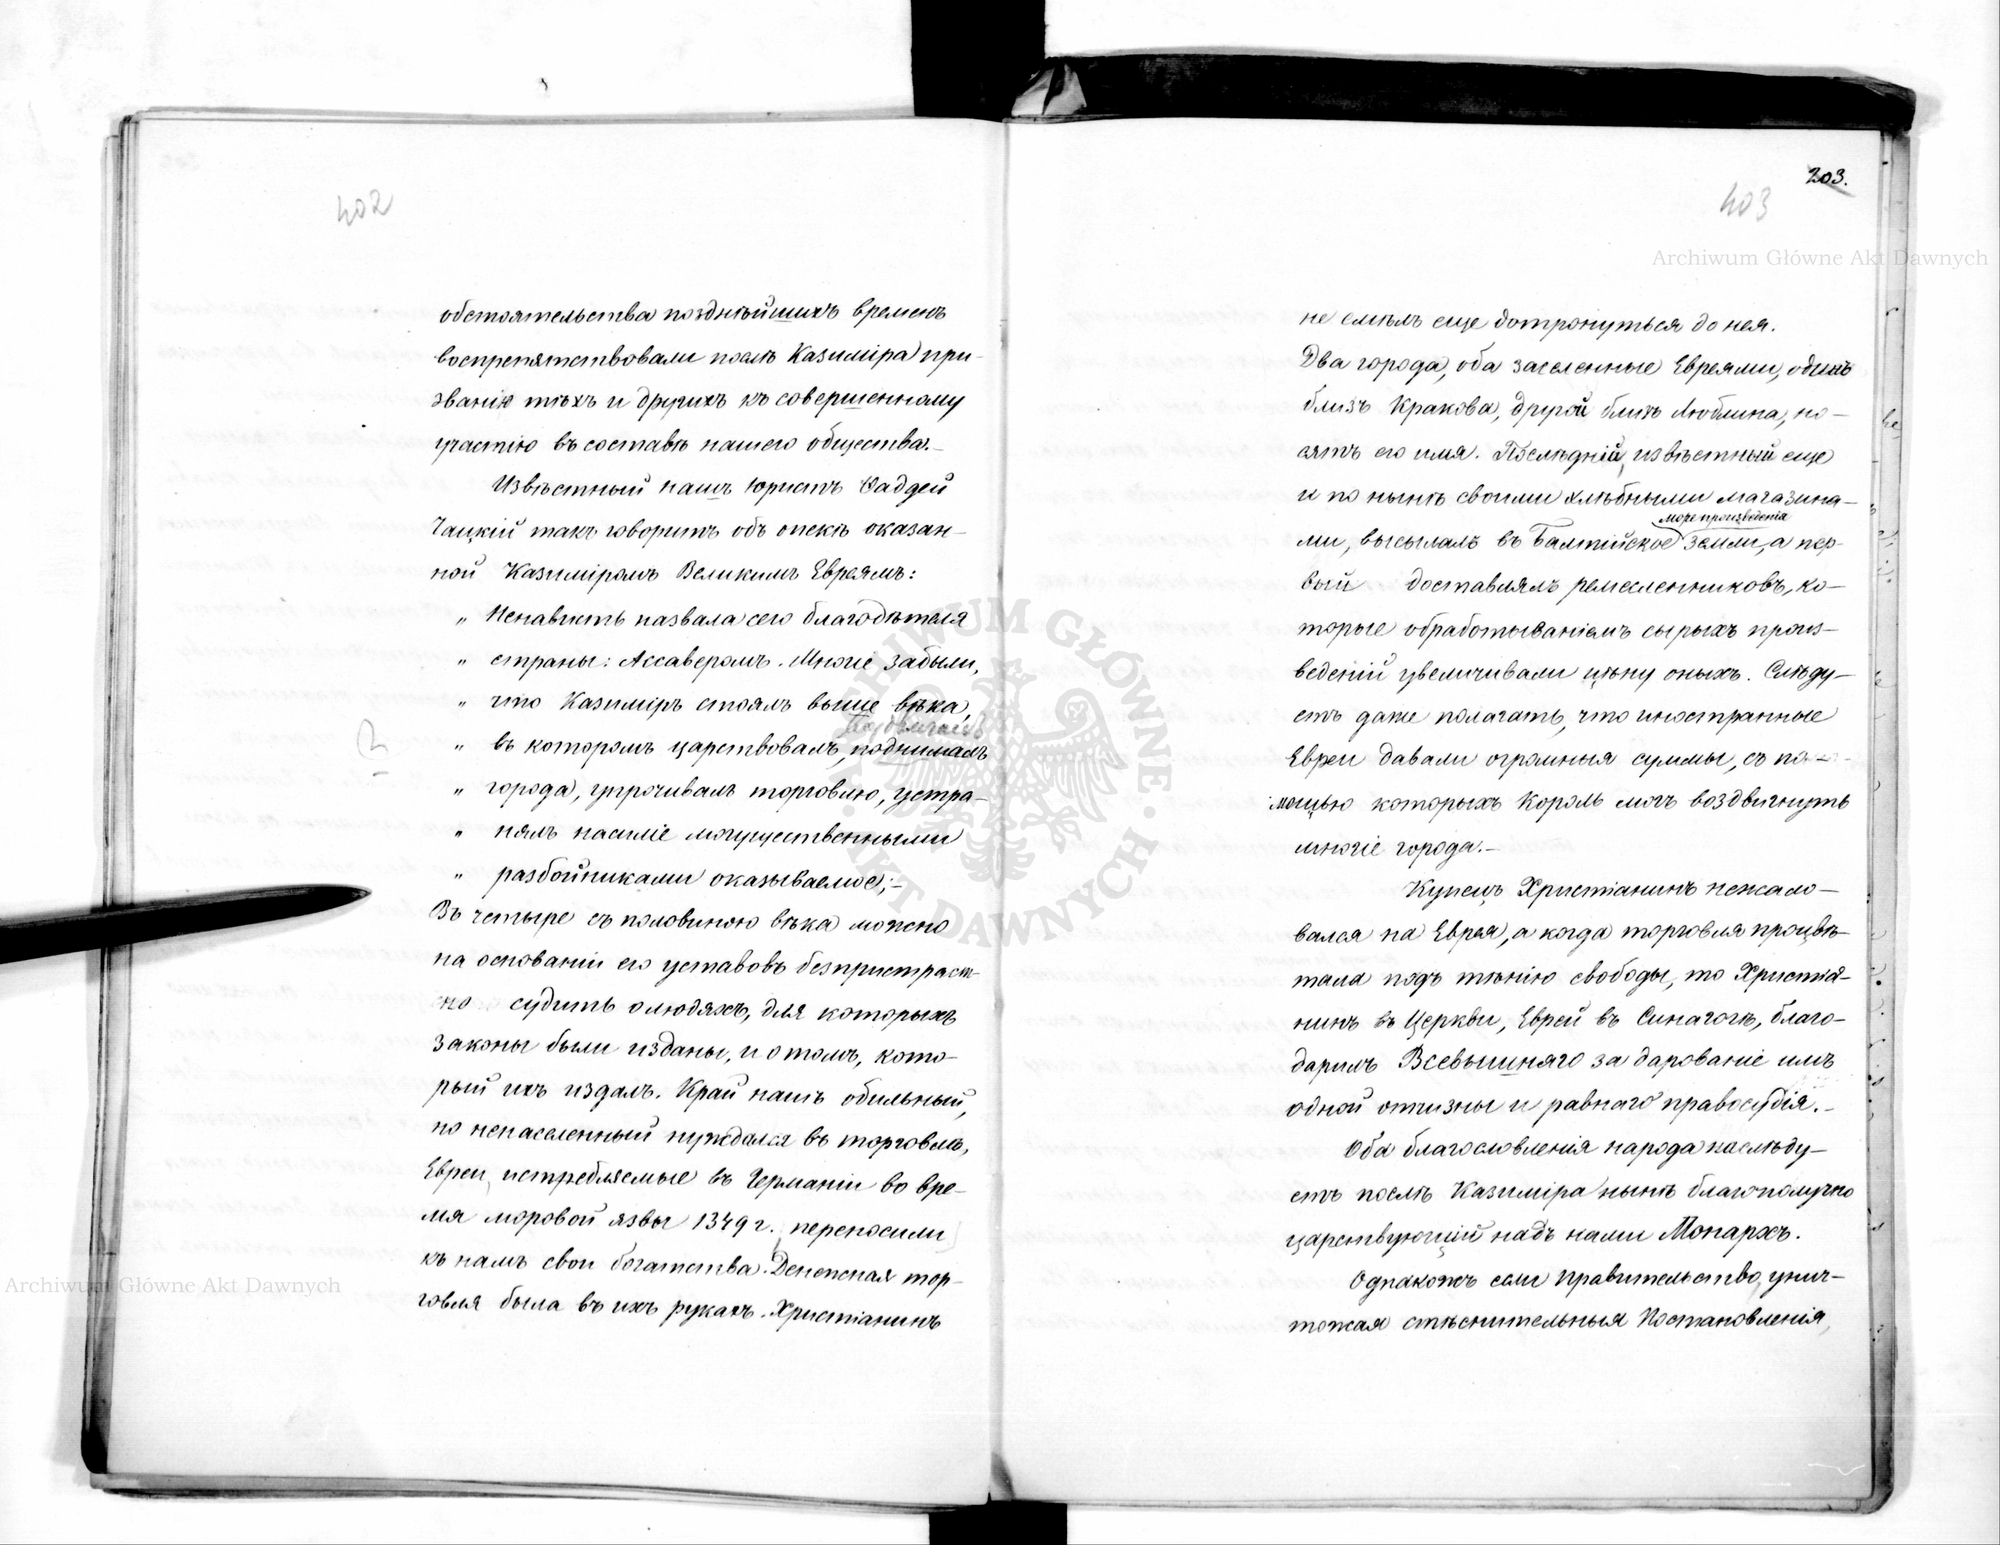 402
обстоятельства позднѣйшихъ временъ
воспрепятствовали послѣ Казиміра при-
званію тѣхъ и другихъ къ совершенному
участію въ составѣ нашего общества.-
Извѣстный нашъ юристъ Фаддей
Чацкій такъ говоритъ объ опекѣ оказан-
ной Казиміромъ Великимъ Евреямъ:
„ Ненависть назвала сего благодѣтеля
„ страны: Ассаверомъ. Многіе забыли,
„ что Казиміръ стоялъ выше вѣка,
„ въ которомъ царствовалъ, поднималъ
„ города, упрочивалъ торговлю, устра-
„ нялъ насиліе могущественными
„ разбойниками оказываемое;-
Въ четыре съ половиною вѣка можно
на основаніи его уставовъ безпристраст-
но судить о людяхъ, для которыхъ
законы были изданы, и о томъ, кото-
рый ихъ издалъ. Край нашъ обильный,
но ненаселенный нуждался въ торговлѣ,
Евреи, истребляемые въ Германіи во вре-
мя моровой язвы 1349 г. переносили
къ намъ свои богатства. Денежная тор-
говля была въ ихъ рукахъ. Христіанинъ
203.
403
не смѣлъ еще дотронуться до нея.
Два города, оба заселенные Евреями, одинъ
близъ Кракова, другой близъ Люблина, но-
сятъ его имя. Послѣдній, извѣстный еще
и по нынѣ своими хлѣбными магазина-
море произведенія
ми, высылалъ въ Балтійское земли, а пер-
вый доставлялъ ремесленниковъ, ко-
торые обработываніемъ сырыхъ произ-
веденій увеличивали цѣну оныхъ. Слѣду-
етъ даже полагать, что иностранные
Евреи давали огромныя суммы, съ по-
мощью которыхъ Король могъ воздвигнуть
многіе города.-
Купецъ Христіанинъ нежало-
вался на Еврея, а когда торговля процвѣ-
тала подъ тѣнію свободы, то Христіа-
нинъ въ Церкви, Еврей въ Синагогѣ, благо-
дарилъ Всевышняго за дарованіе имъ
одной отчизны и равнаго правосудія.-
Оба благословленія народа наслѣду-
етъ послѣ Казиміра нынѣ благополучно
царствующій надъ нами Монархъ.
Однакожъ если Правительство, унич-
тожая стѣснительныя Постановленія,
Archiwum Główne Akt Dawnych
Archiwum Główne Akt Dawnych
ARCHIWUM GŁÓWNE AKT DAWNYCH